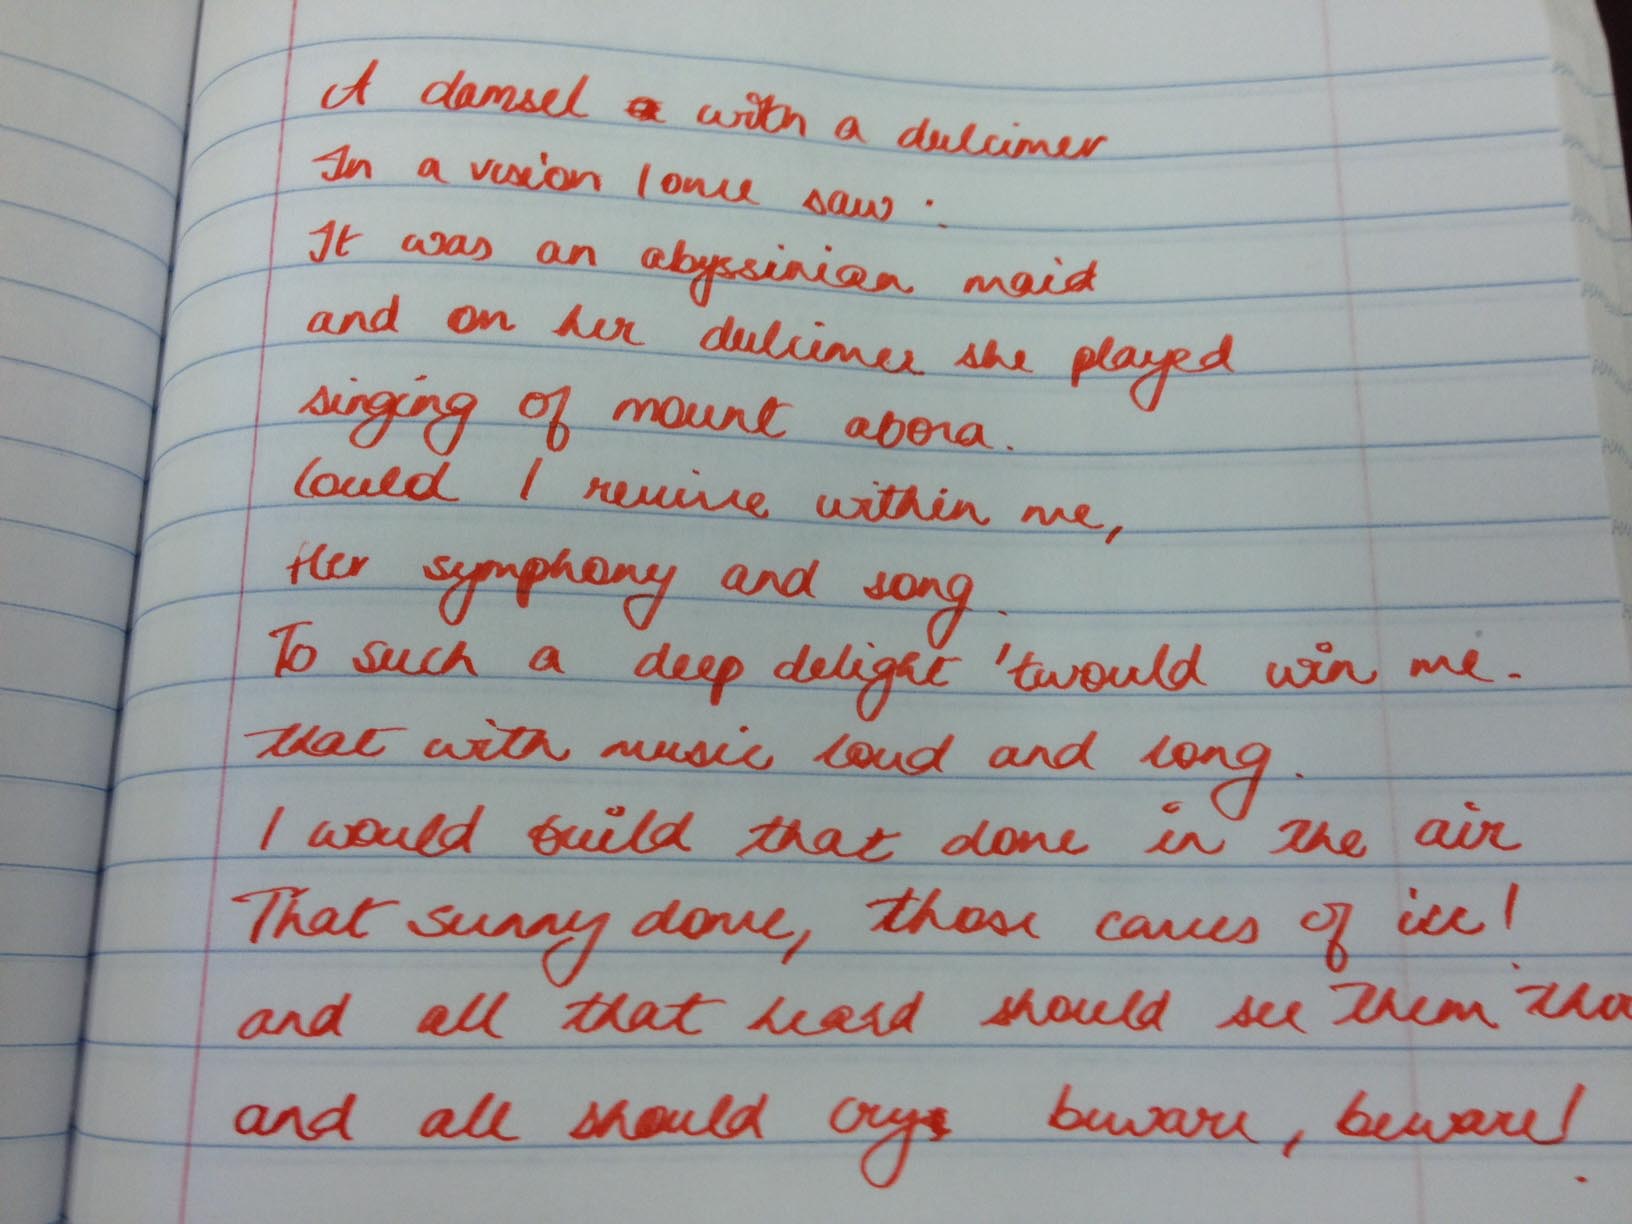 A damsel a with a dulcimer
In a vision I once saw :
It was an abyssinian maid
and on her dulcimer she played
singing of mount abora.
Could I revive within me,
Her symphony and song.
To such a deep delight 'twould win me.
that with music loud and long.
I would build that dome in the air
That sunny dome, those caves of ice!
and all that heard should see them
and all should cry beware, beware!